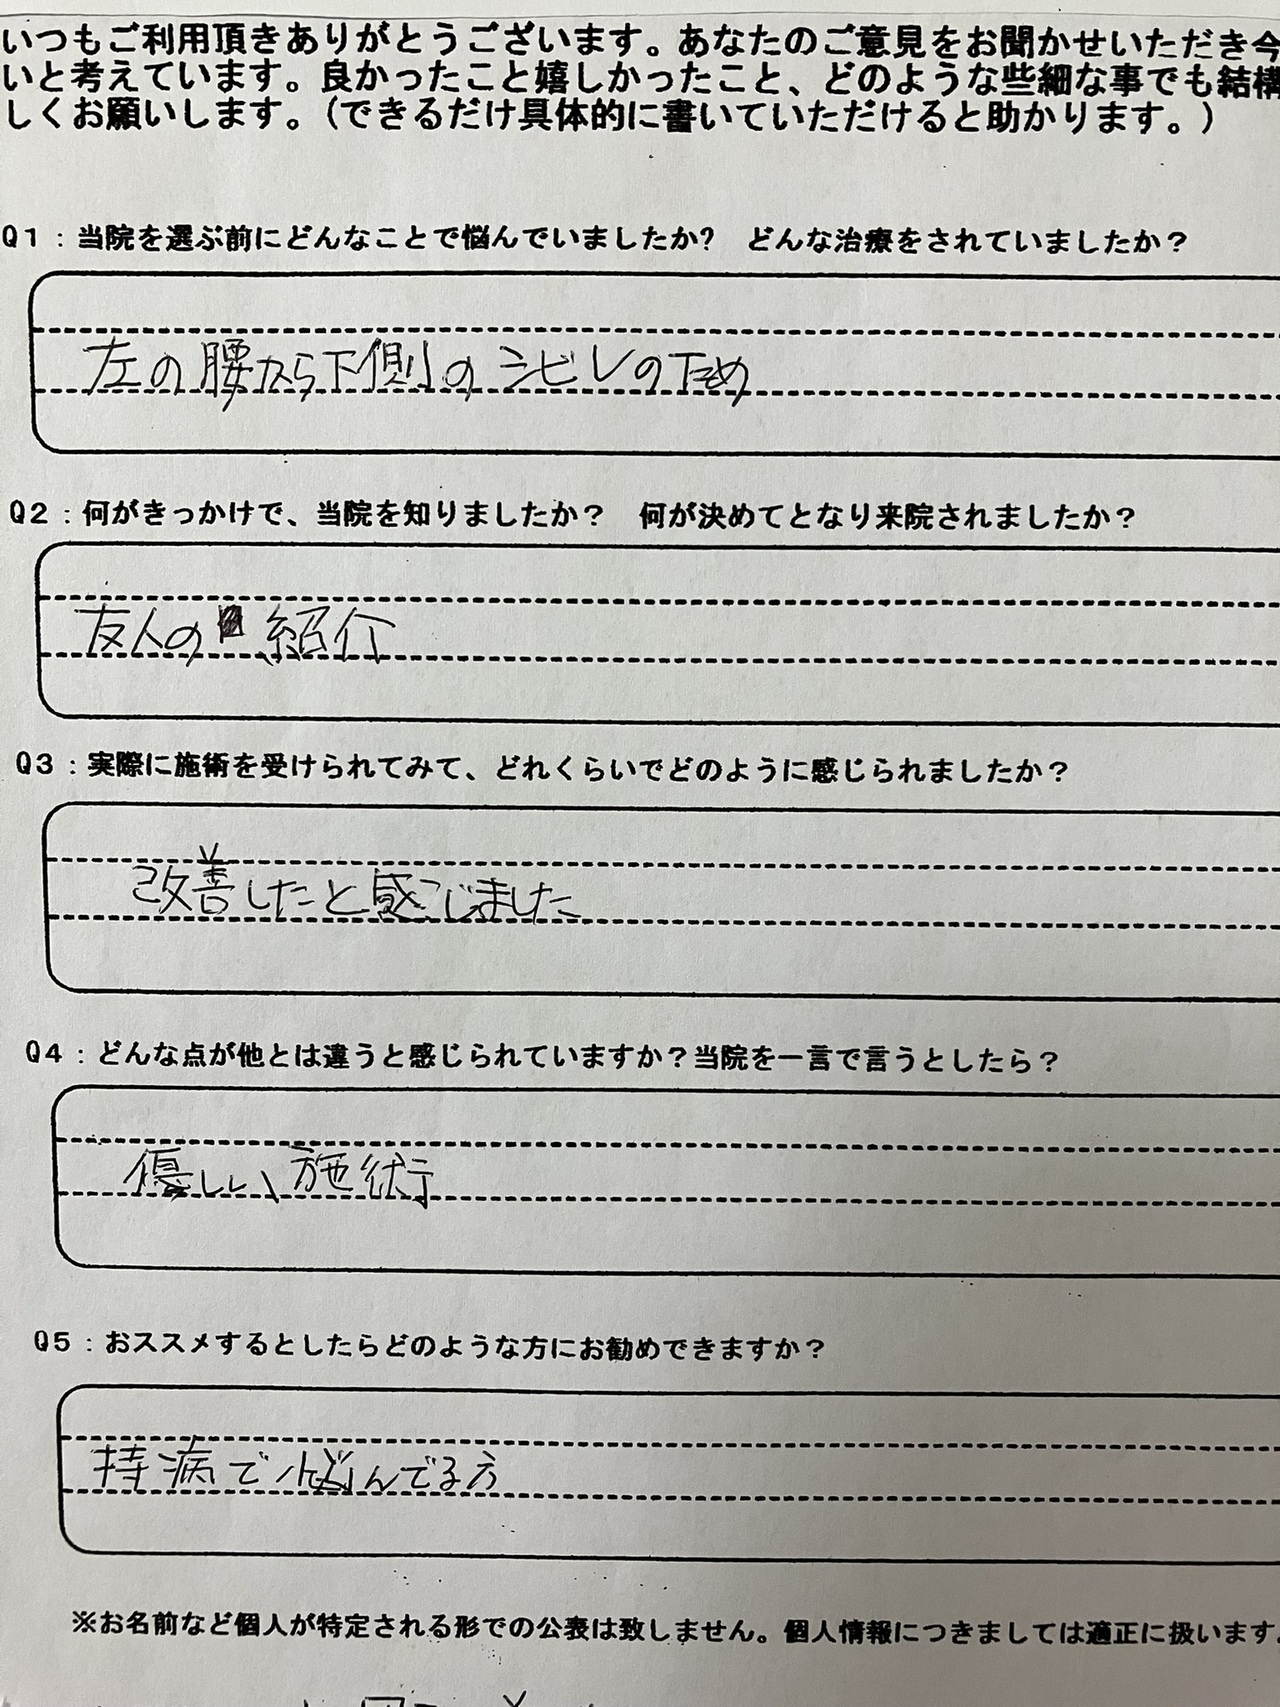 いつもご利用頂きありがとうございます。あなたのご意見をお聞かせいただき今
いと考えています。良かったこと嬉しかったこと、どのような些細な事でも結構
しくお願いします。（できるだけ具体的に書いていただけると助かります。）
Q1：当院を選ぶ前にどんなことで悩んでいましたか?　どんな治療をされていましたか？
左の腰から下側のシビレのため
Q2：何がきっかけで、当院を知りましたか？　何が決めてとなり来院されましたか？
友人の紹介
Q3：実際に施術を受けられてみて、どれくらいでどのように感じられましたか？
改善したと感じました
Q4：どんな点が他とは違うと感じられていますか？当院を一言で言うとしたら？
優しい施術
Q5：おススメするとしたらどのような方にお勧めできますか？
持病で悩んでる方
※お名前など個人が特定される形での公表は致しません。個人情報につきましては適正に扱います。